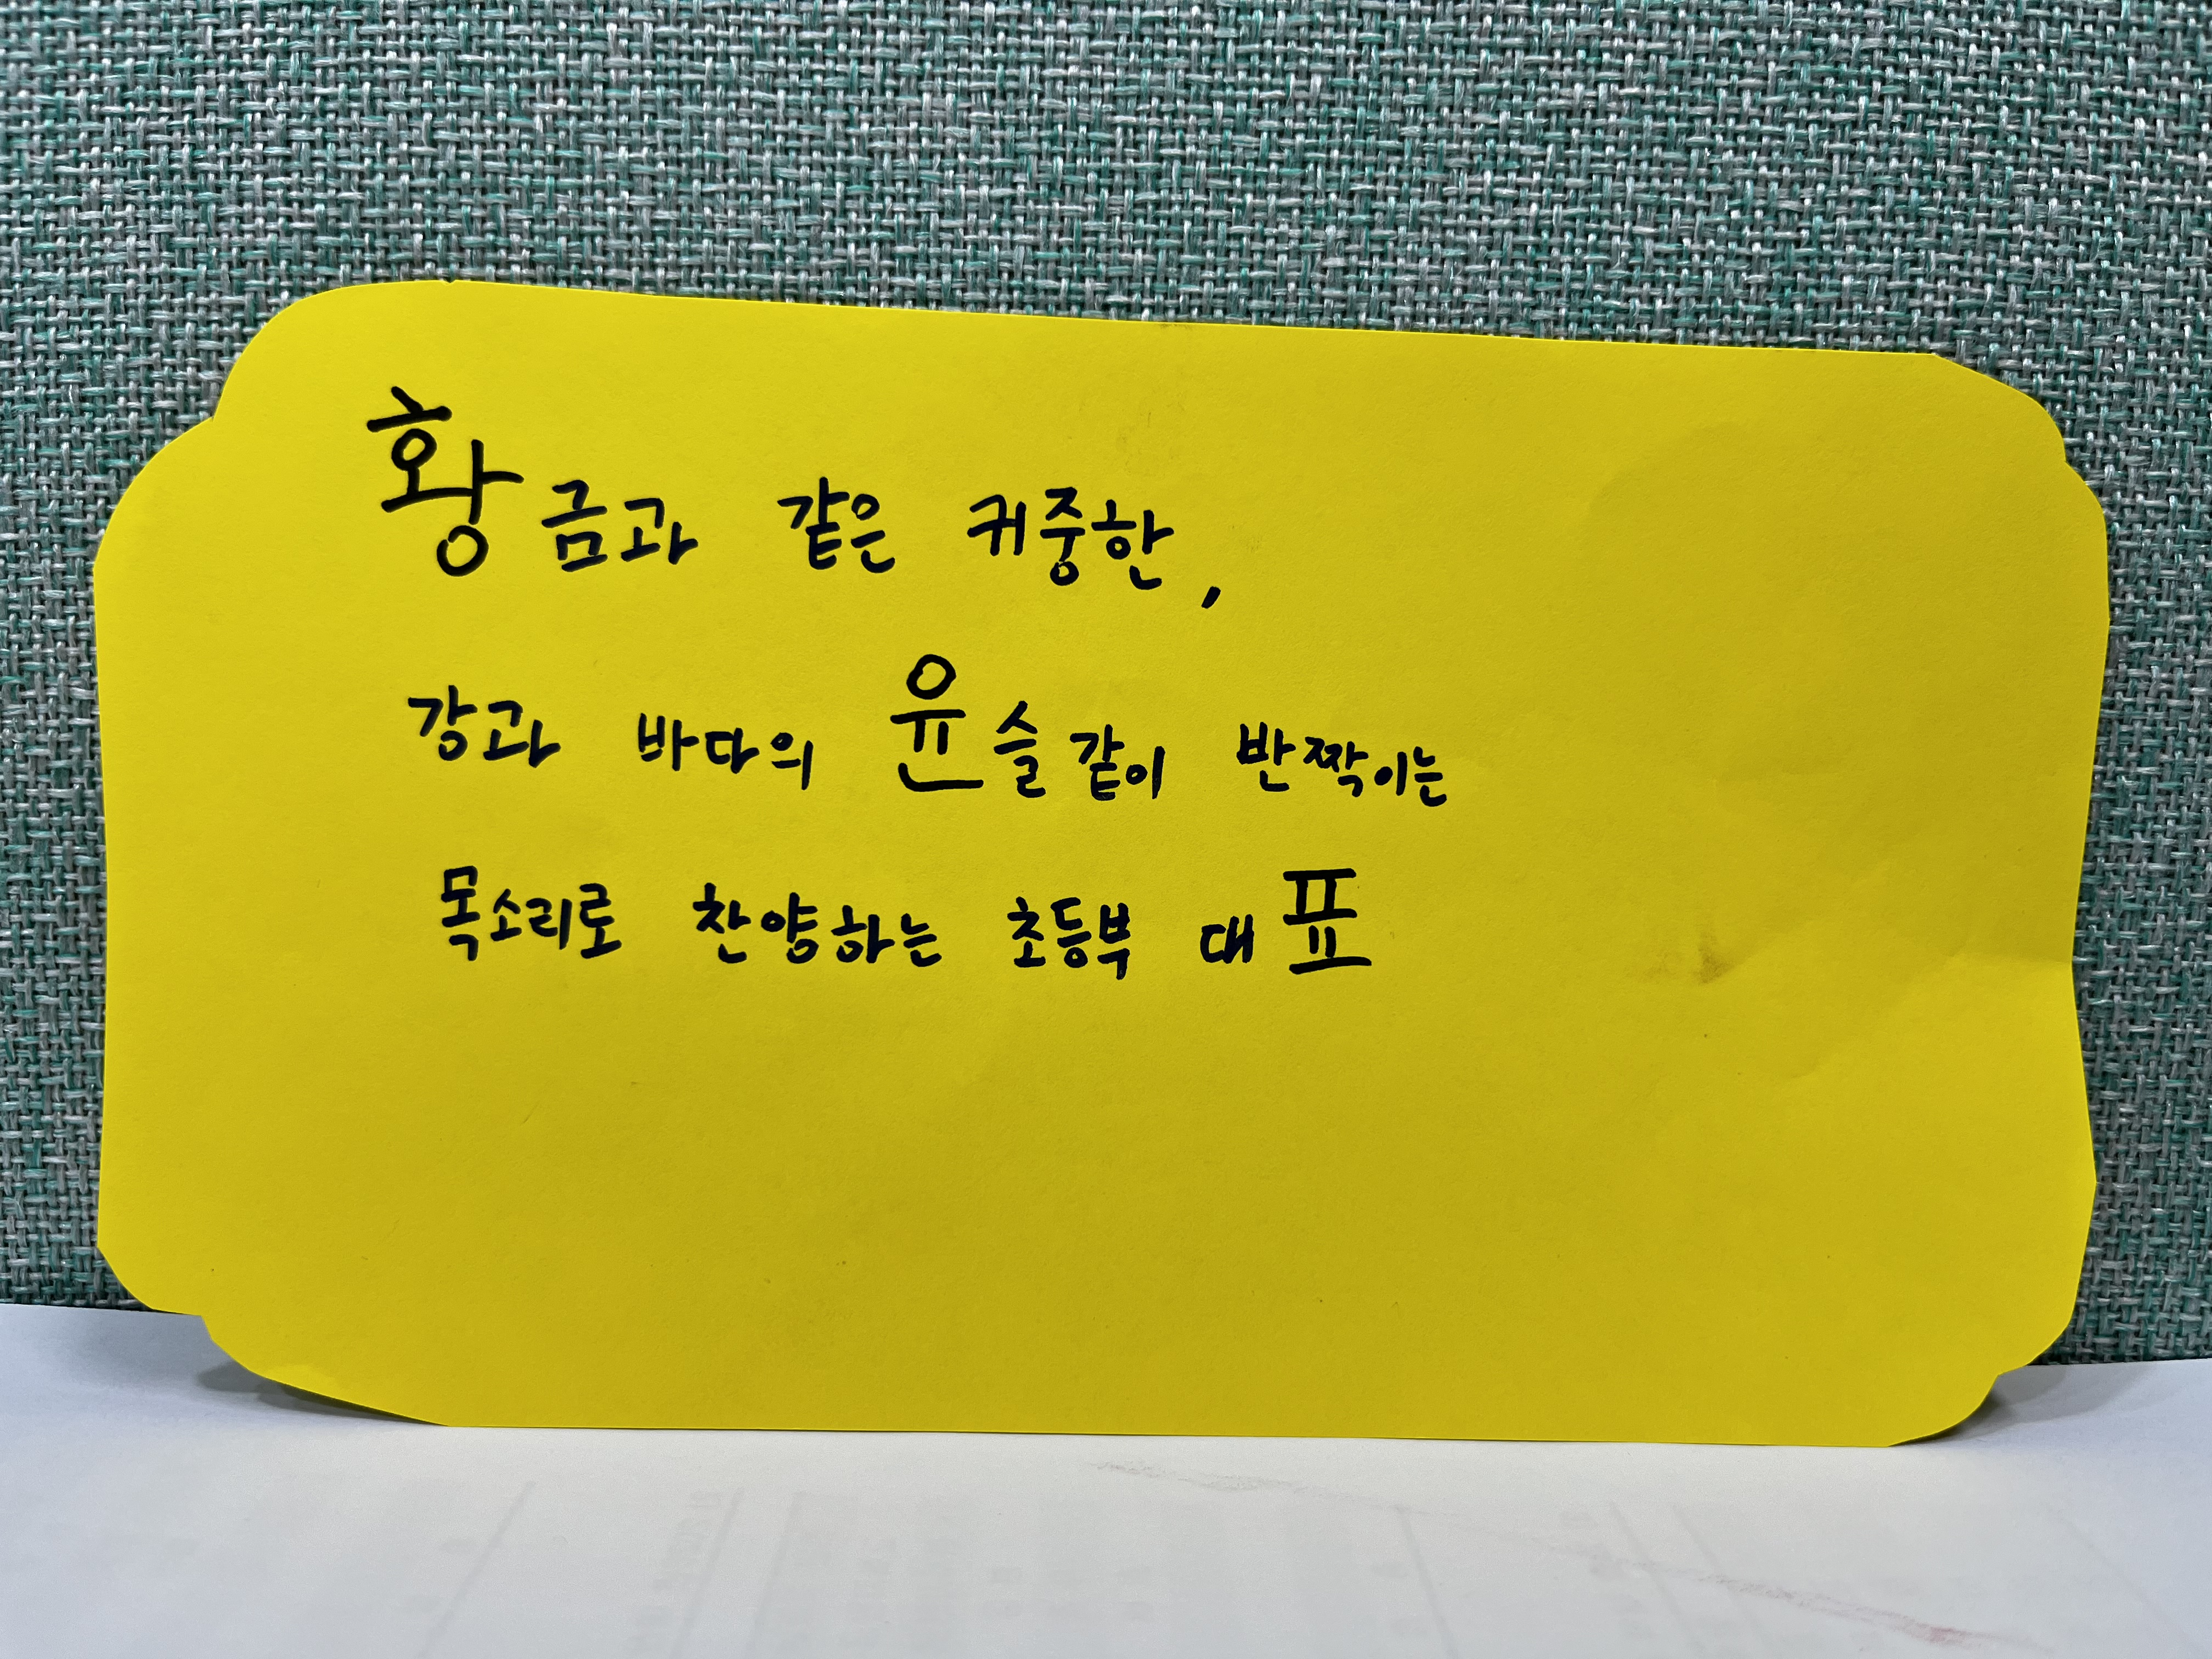 황금과 같은 귀중한,
강과 바다의 윤슬같이 반짝이는
목소리로 찬양하는 초등부 대표